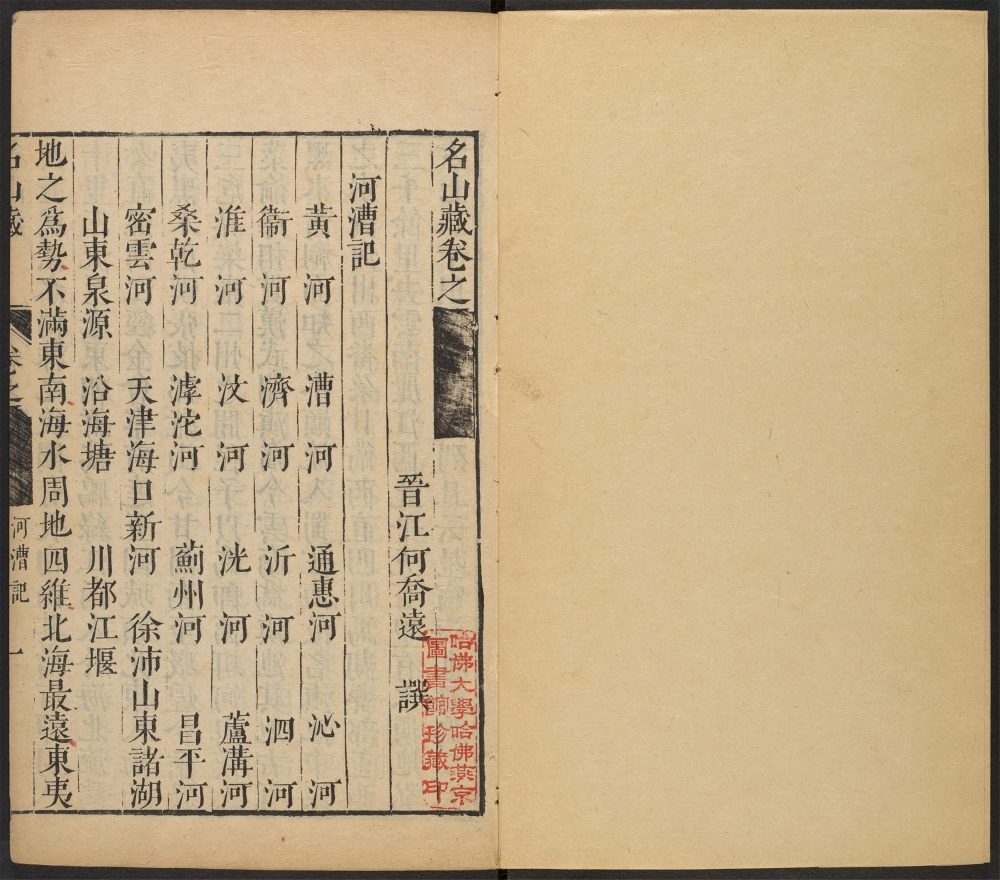 名山藏卷之
晉江何喬遠 譔
河漕記
黃河 漕河 通惠河 沁河
衞河 濟河 沂河 泗河
淮河 汶河 洸河 蘆溝河
桑乾河 滹沱河 薊州河 昌平河
密雲河 天津海口新河 徐沛山東諸湖
山東泉源 沿海塘 川都江堰
地之爲勢不滿東南海水周地四維北海最遠東夷
名山藏 卷之 河漕記 一
哈佛大學哈佛燕京
圖書館珍藏印